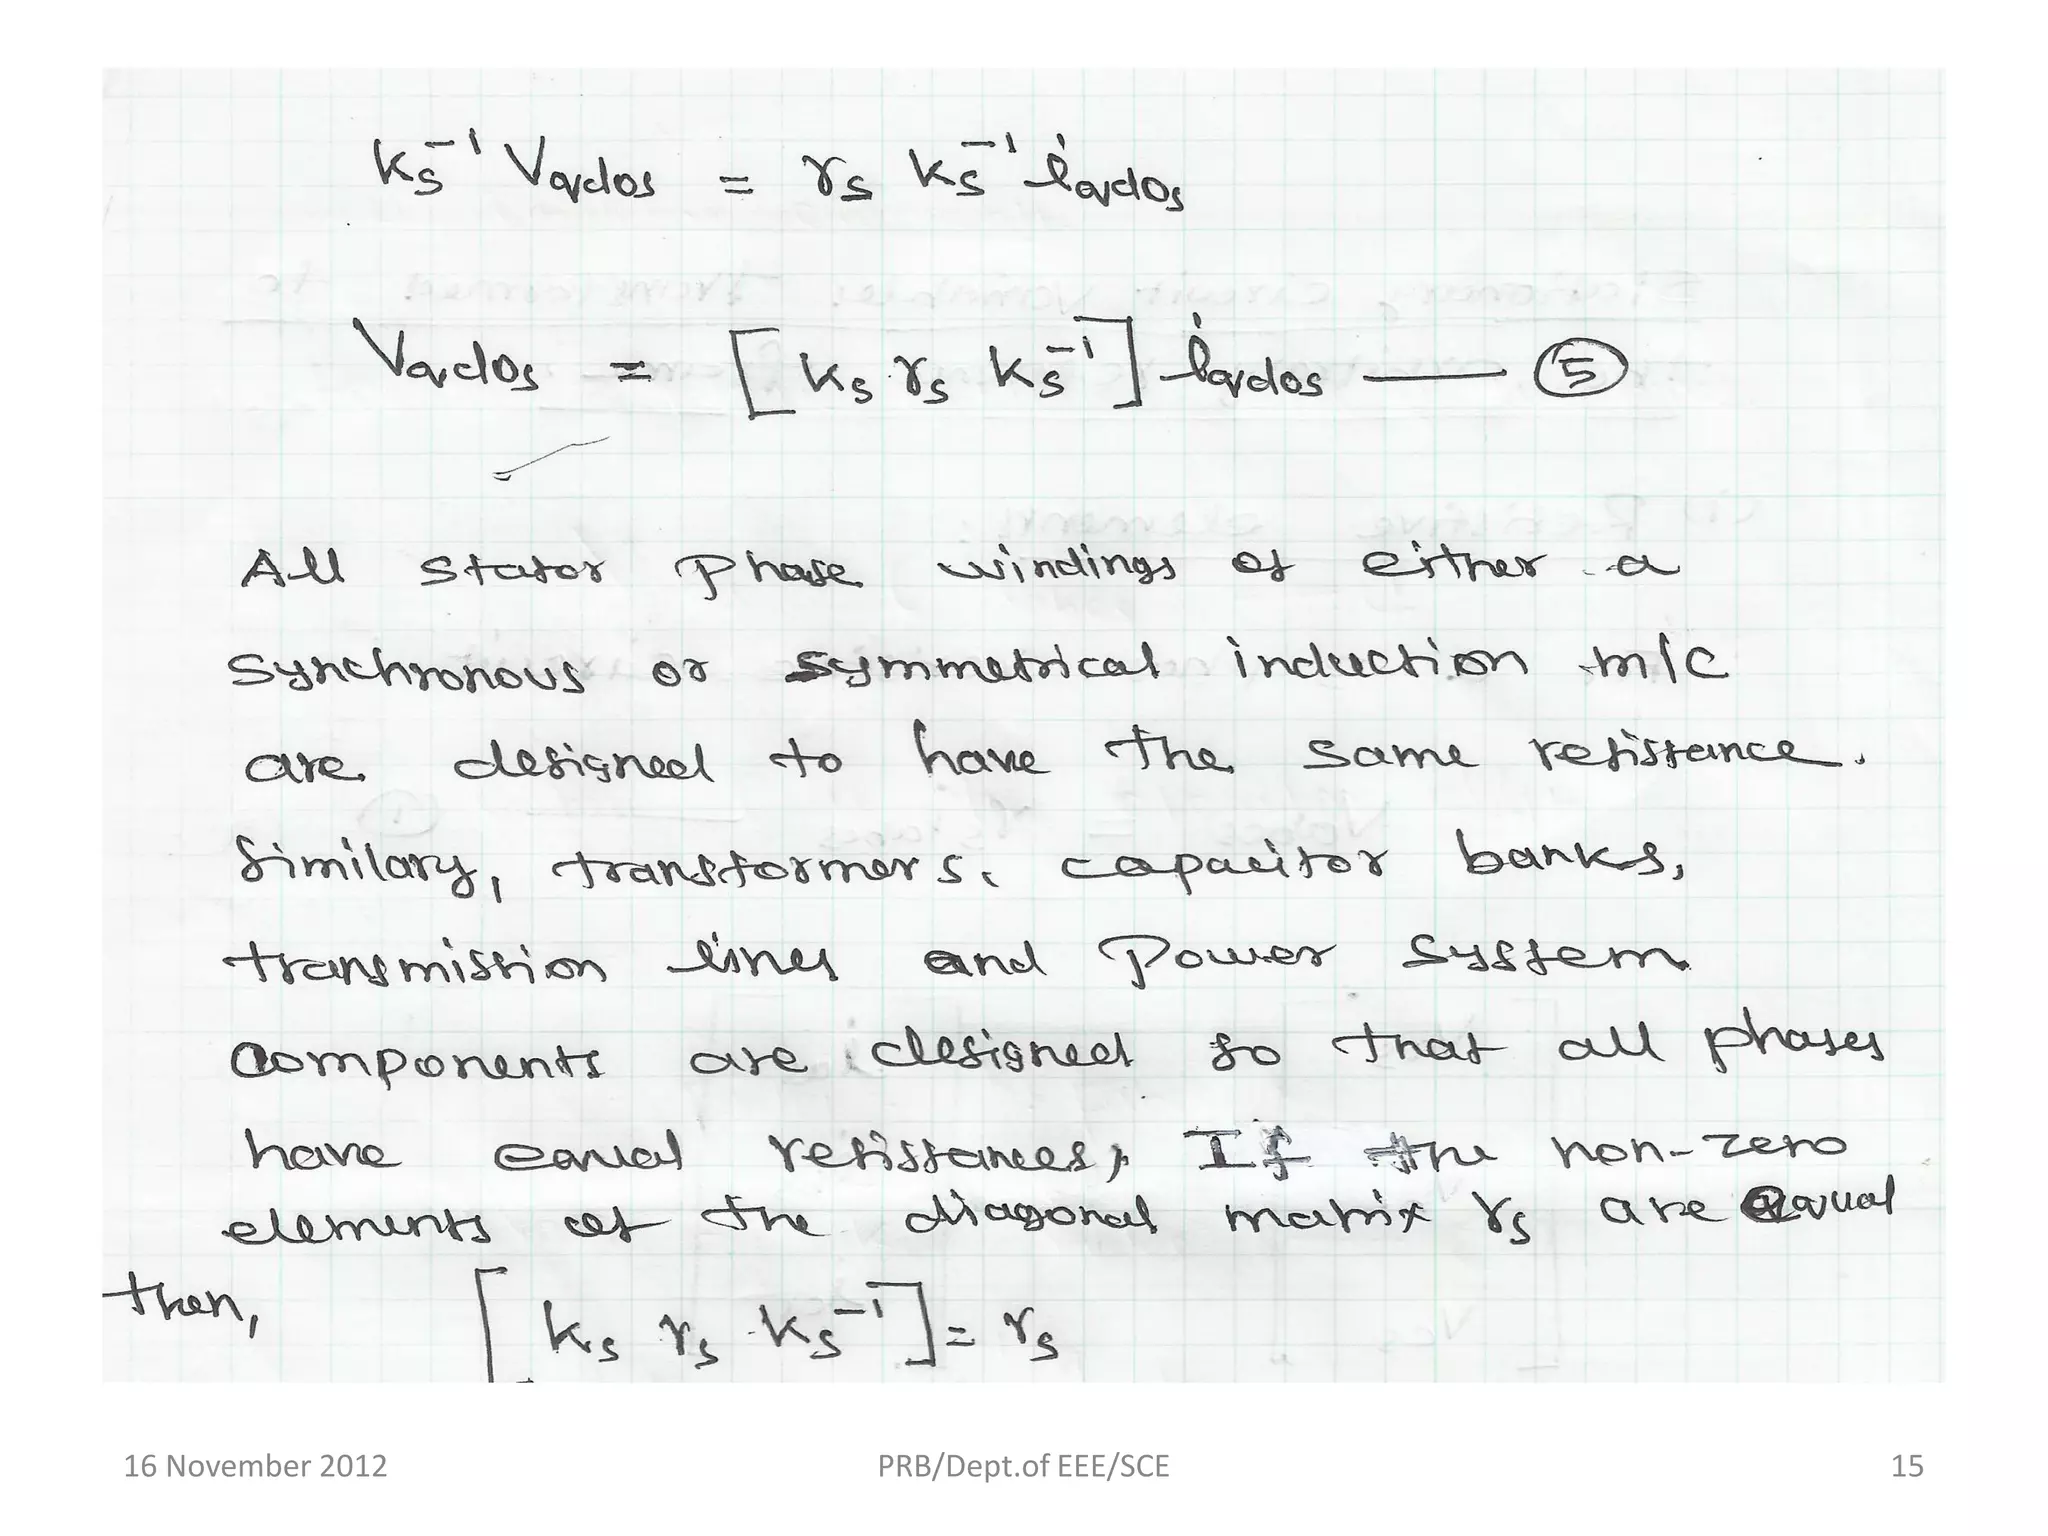 Ks⁻¹ Vqdos = rs Ks⁻¹ iqdos
Vqdos = [Ks rs Ks⁻¹] iqdos — ⑤
All stator phase windings of either a
synchronous or symmetrical induction m/c
are designed to have the same resistance.
Similary, transformers, capacitor banks,
transmission lines and Power system
components are designed so that all phases
have equal resistances, If the non-zero
elements of the diagonal matrix rs are equal
then, [Ks rs Ks⁻¹] = rs
16 November 2012 PRB/Dept.of EEE/SCE 15